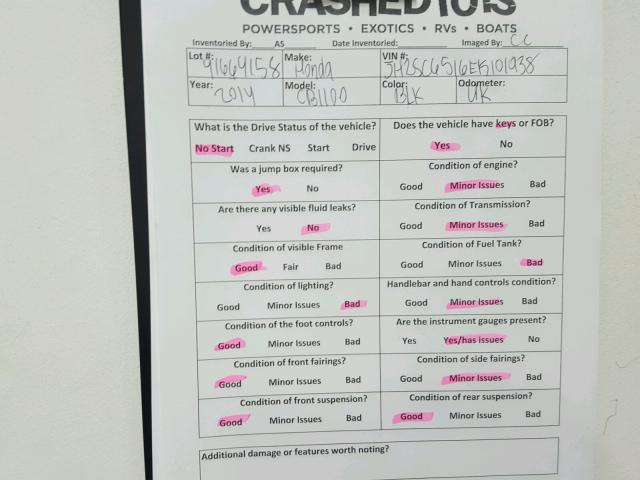 CRASHEDTOYS
POWERSPORTS • EXOTICS • RVs • BOATS
Inventoried By: AS Date Inventoried: Imaged By: CC
Lot #: 41664158 Make: Honda VIN #: JH2SC6516EK101938
Year: 2014 Model: CB1100 Color: BLK Odometer: UK
What is the Drive Status of the vehicle? Does the vehicle have keys or FOB?
No Start Crank NS Start Drive Yes No
Was a jump box required? Condition of engine?
Yes No Good Minor Issues Bad
Are there any visible fluid leaks? Condition of Transmission?
Yes No Good Minor Issues Bad
Condition of visible Frame Condition of Fuel Tank?
Good Fair Bad Good Minor Issues Bad
Condition of lighting? Handlebar and hand controls condition?
Good Minor Issues Bad Good Minor Issues Bad
Condition of the foot controls? Are the instrument gauges present?
Good Minor Issues Bad Yes Yes/has issues No
Condition of front fairings? Condition of side fairings?
Good Minor Issues Bad Good Minor Issues Bad
Condition of front suspension? Condition of rear suspension?
Good Minor Issues Bad Good Minor Issues Bad
Additional damage or features worth noting?